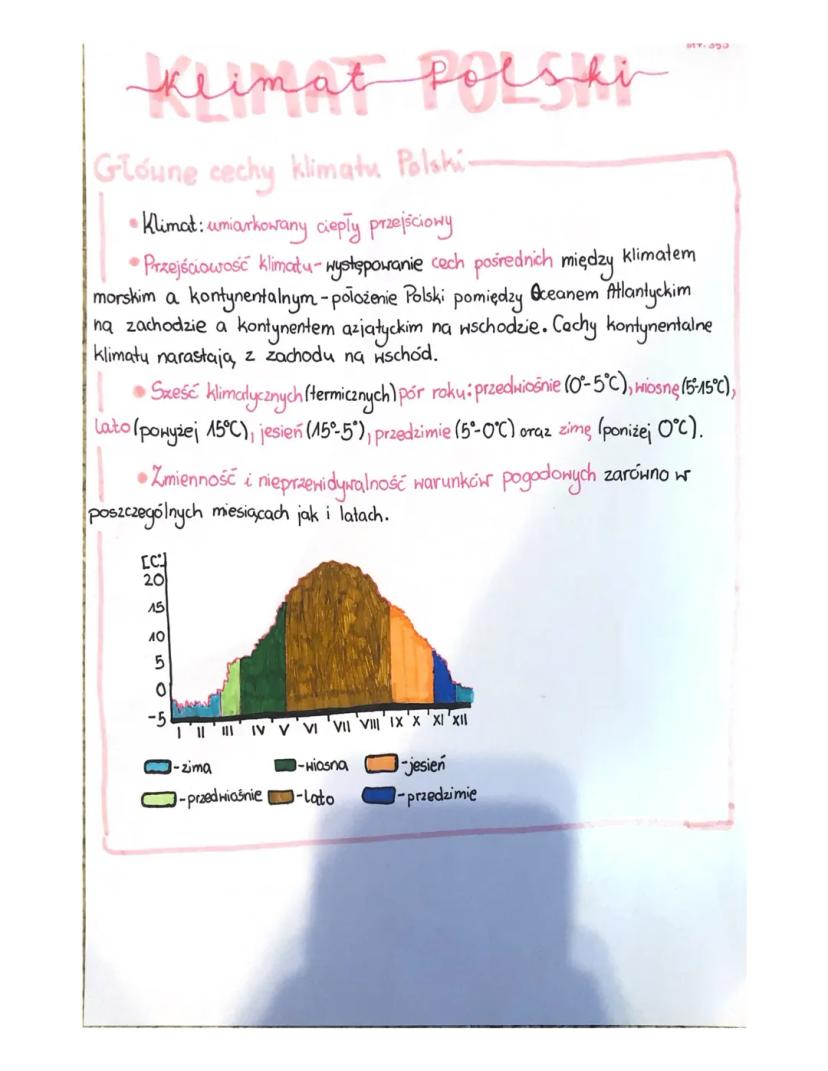 str. 393
Klimat Polski
KLIMAT POLSKI
Główne cechy klimatu Polski
• Klimat: umiarkowany ciepły przejściowy
• Przejściowość klimatu - występowanie cech pośrednich między klimatem
morskim a kontynentalnym - położenie Polski pomiędzy Oceanem Atlantyckim
na zachodzie a kontynentem azjatyckim na wschodzie. Cechy kontynentalne
klimatu narastają z zachodu na wschód.
• Sześć klimatycznych (termicznych) pór roku: przedwiośnie (0°-5°C), wiosnę (5°-15°C),
lato (powyżej 15°C), jesień (15°-5°), przedzimie (5°-0°C) oraz zimę (poniżej 0°C).
• Zmienność i nieprzewidywalność warunków pogodowych zarówno w
poszczególnych miesiącach jak i latach.
[C°]
20
15
10
5
0
-5
I II III IV V VI VII VIII IX X XI XII
-zima -wiosna -jesień
-przedwiośnie -lato -przedzimie